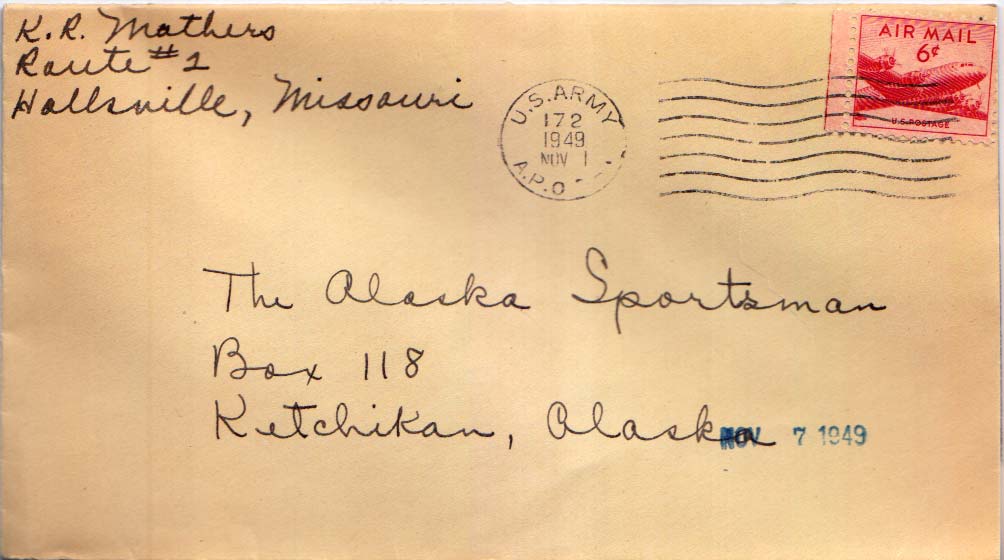 K.R. Mathers
Route #1
Hallsville, Missouri
U.S. ARMY
172
1949
NOV 1
A.P.O.
AIR MAIL
6¢
U.S. POSTAGE
The Alaska Sportsman
Box 118
Ketchikan, Alaska
NOV 7 1949